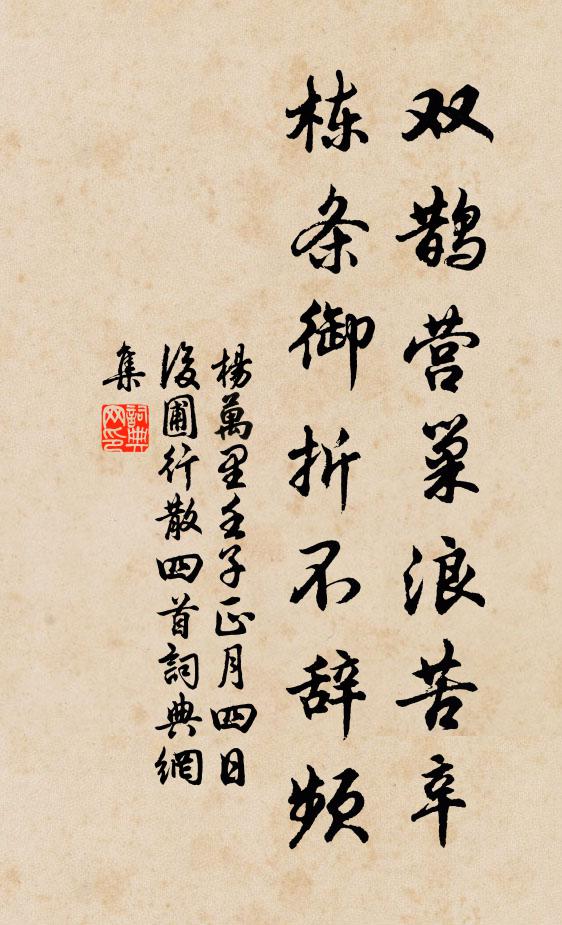 双鹊营巢浪苦辛
栋条御折不辞频
楊萬里壬子正月四日
後圃行散四首詞典網
集
詞典
网印